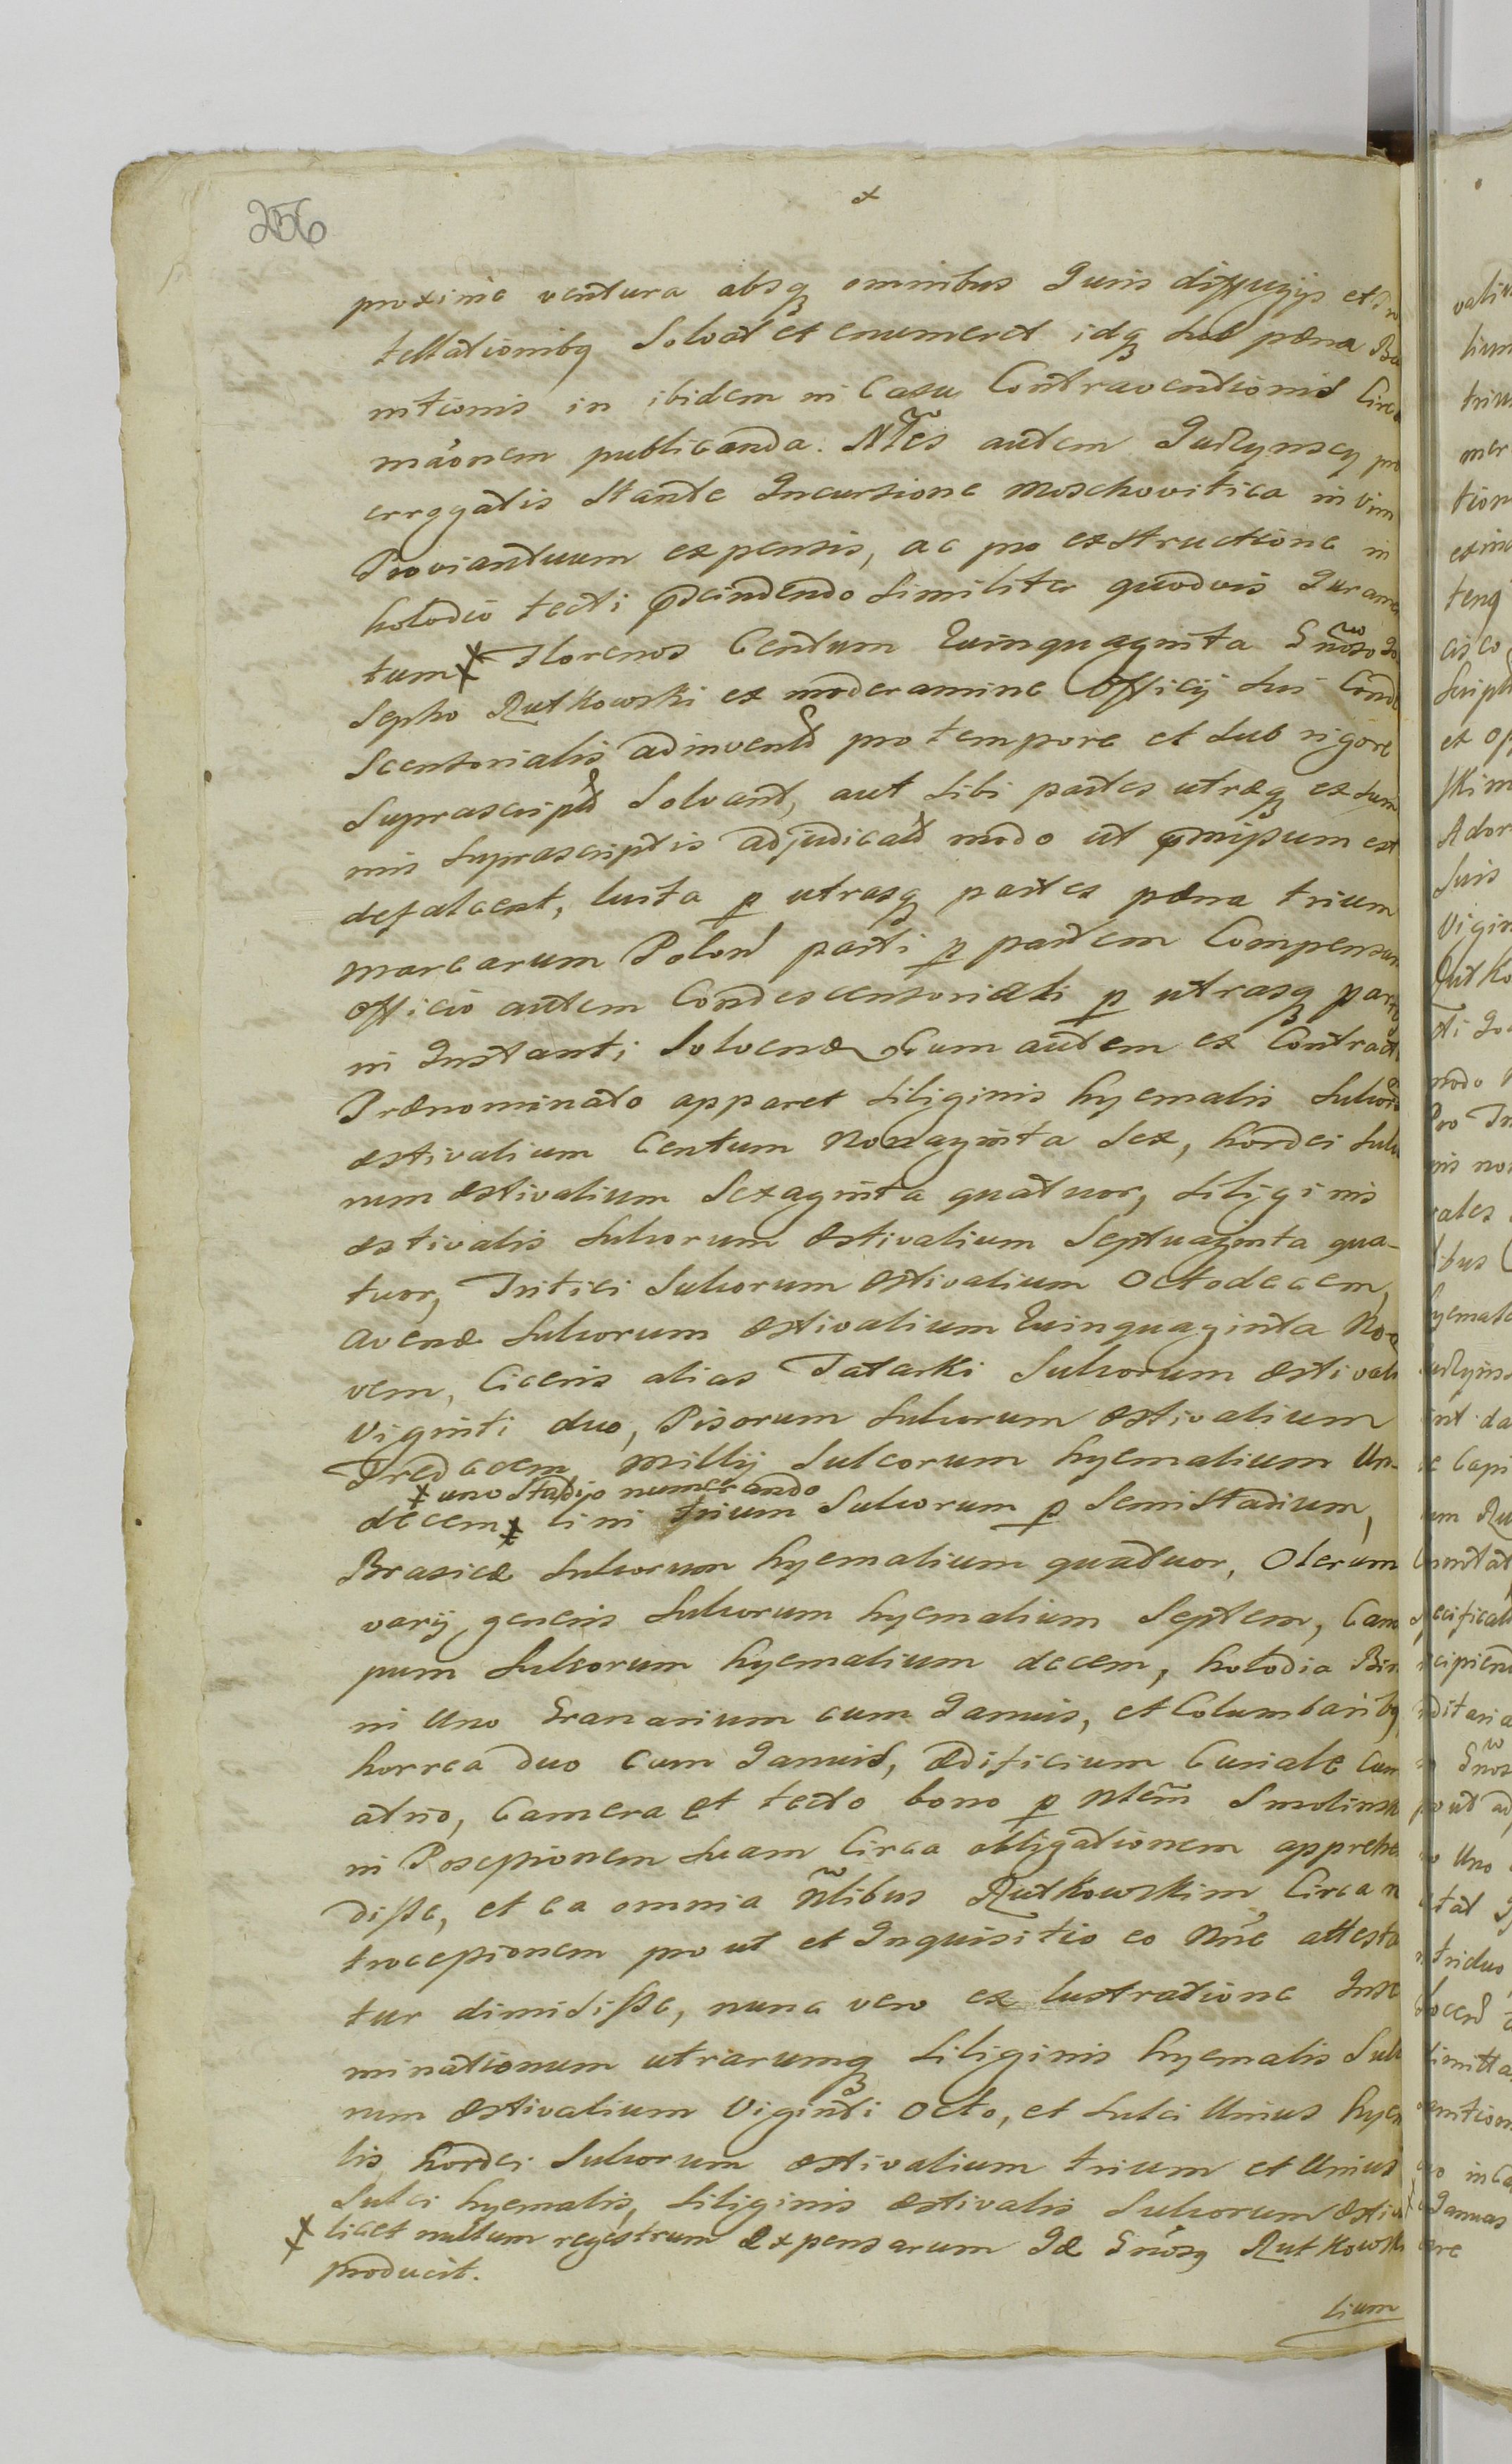 256
proxime ventura absq omnibus Juris diffugijs et
testationibq Solvat et enumeret idq sub pæna Ba
nitionis in ibidem in Casu Contraventionis Circa
maōnem publicanda. Nles autem Jurzynscy pro
erogatis Stante Incursione Moschovitica in vim
Proviantuum expensis, ac pro exstructione in
holodio tecti præscindendo Similiter quodvis Juramen
tum ⁜ Florenos Centum Quinquaginta Gnoso Jo
sepho Rutkowski ex moderamine Officij Sui Conde
Scensorialis adinvent pro tempore et sub rigore
Suprascript Solvant, aut Sibi partes utræq ex Sum
mis Suprascriptis adjudicat modo ut præmissum est
defalcent, luita p utrasq partes pæna trium
Marcarum Polon parti p partem Compensan
Officio autem Condescensoriali p utrasq partes
in Instanti Solvenda. Cum autem ex Contractu
Prænominato apparet Siliginis hyemalis Sulcorum
æstivalium Centum Nonaginta Sex, hordei Sulco
rum æstivalium Sexaginta quatuor, Siliginis
æstivalis Sulcorum æstivalium Septuaginta qua-
tuor, Tritici Sulcorum æstivalium Octodecem,
Avenæ Sulcorum æstivalium Quinquaginta No-
vem, Ciceris alias Tatarki Sulcorum æstivali
Viginti duo, Pisorum Sulcorum æstivalium
Tredecem Millij Sulcorum hyemalium Un-
⁜ uno Stadijo numerando
decem ⁜ lini trium Sulcorum p Semistadium,
Brasicæ Sulcorum hyemalium quatuor, Olerum
varij generis Sulcorum hyemalium Septem, Cam
pum Sulcorum hyemalium decem, holodia Bin
ni Uno Granarium cum Januis, et Columbaribq
horrea duo cum Januis, ædificium Curiale Cum
atrio, Camera et tecto bono p Nlem Smolinsk
in Possessionem Suam Circa obligationem apprehen
disse, et ea omnia Nlibus Rutkowskim Circa n
trocessionem pro ut et Inquisitio eo Nne attesta
tur dimisisse, nunc vero ex lustratione Inse
minationum utriarumq Siliginis hyemalis Sulc
rum æstivalium Viginti Octo, et Sulci Unius hyem
lis hordei Sulcorum æstivalium trium et Unius
Sulci hyemalis, Siliginis æstivalis Sulcorum æstiva
⁜ licet nullum regestrum Expensarum Gæ Gnosq Rutkowski
producit.
lium